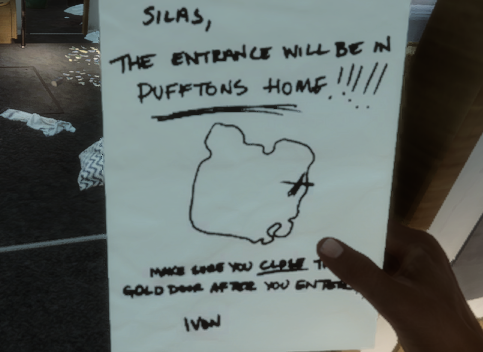 SILAS,
THE ENTRANCE WILL BE IN
PUFFTONS HOME!!!!!
MAKE SURE YOU CLOSE
GOLD DOOR AFTER YOU ENTER
IVON